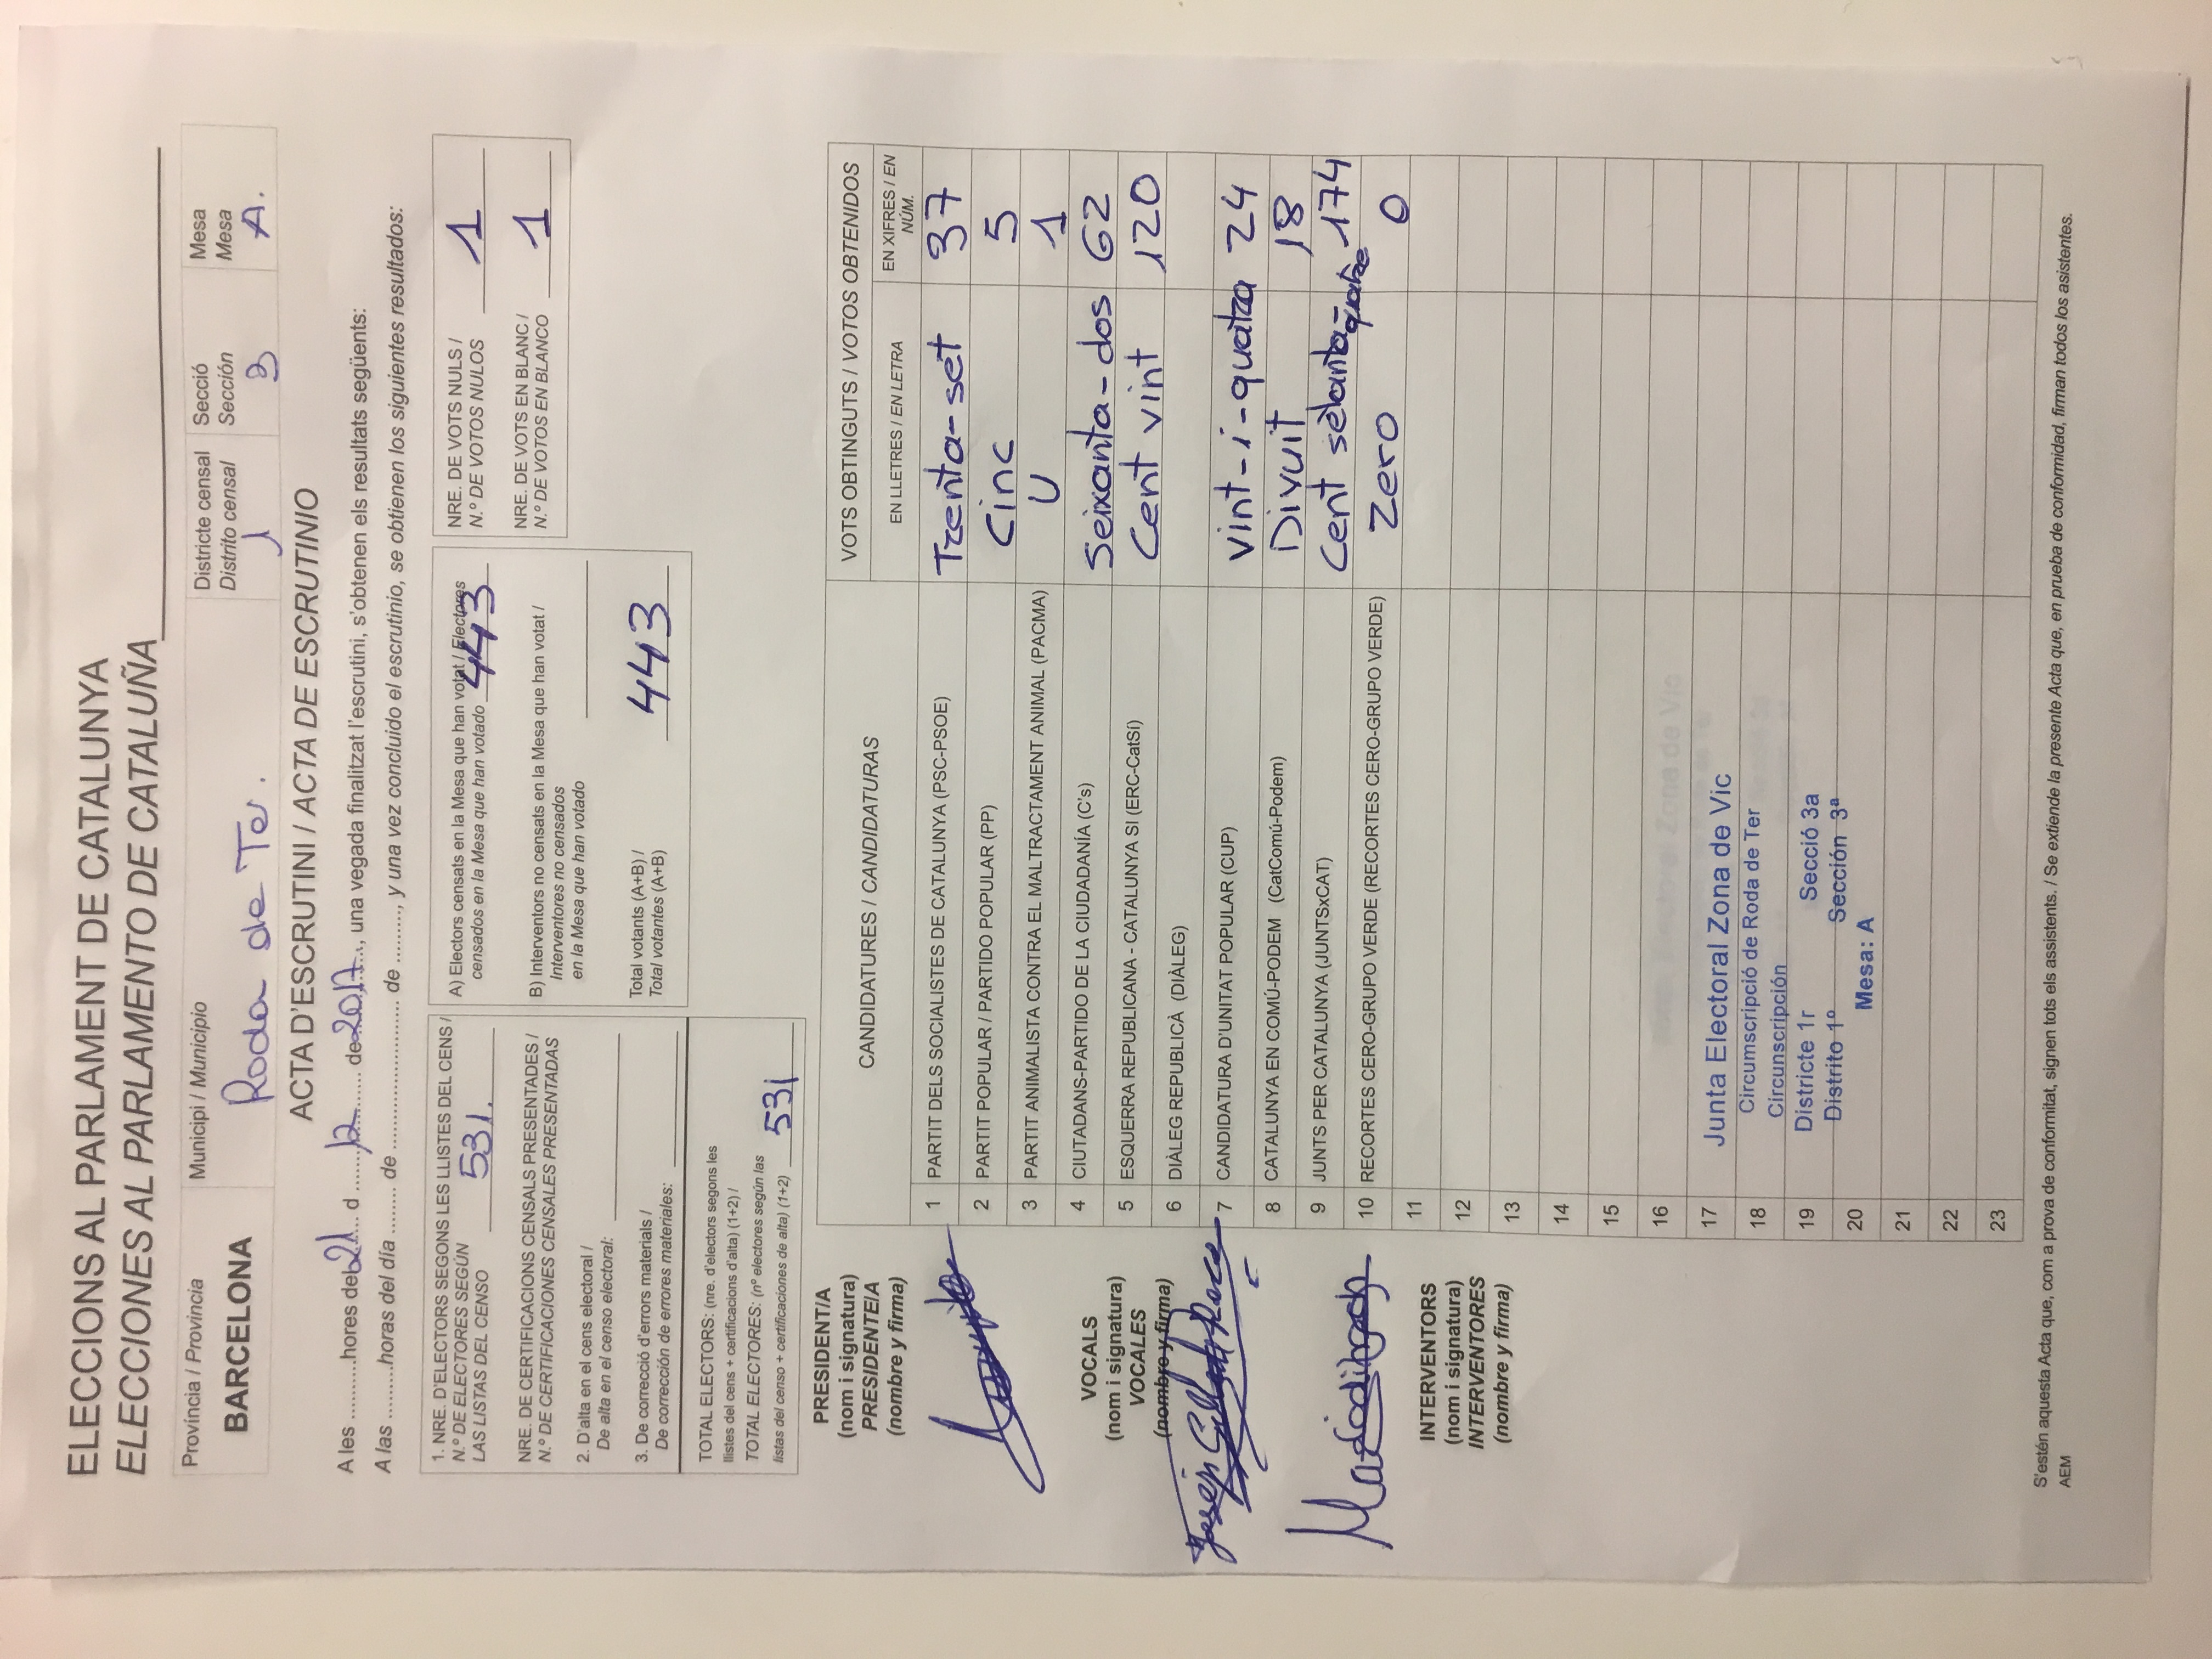 ELECCIONS AL PARLAMENT DE CATALUNYA
ELECCIONES AL PARLAMENTO DE CATALUÑA
Província / Provincia
BARCELONA
Municipi / Municipio
Roda de Ter.
Districte censal
Distrito censal
1
Secció
Sección
3
Mesa
Mesa
A.
ACTA D'ESCRUTINI / ACTA DE ESCRUTINIO
A les ..........hores de 21 d 12 de 2017, una vegada finalitzat l'escrutini, s'obtenen els resultats següents:
A las ..........horas del día ......... de ........................ de ........, y una vez concluido el escrutinio, se obtienen los siguientes resultados:
1. NRE. D'ELECTORS SEGONS LES LLISTES DEL CENS /
N.º DE ELECTORES SEGÚN
LAS LISTAS DEL CENSO 531.
NRE. DE CERTIFICACIONS CENSALS PRESENTADES /
N.º DE CERTIFICACIONES CENSALES PRESENTADAS
2. D'alta en el cens electoral /
De alta en el censo electoral:
3. De correcció d'errors materials /
De corrección de errores materiales:
TOTAL ELECTORS: (nre. d'electors segons les
llistes del cens + certificacions d'alta) (1+2) /
TOTAL ELECTORES: (nº electores según las
listas del censo + certificaciones de alta) (1+2) 531
A) Electors censats en la Mesa que han votat / Electores
censados en la Mesa que han votado 443
B) Interventors no censats en la Mesa que han votat /
Interventores no censados
en la Mesa que han votado
Total votants (A+B) /
Total votantes (A+B) 443
NRE. DE VOTS NULS /
N.º DE VOTOS NULOS 1
NRE. DE VOTS EN BLANC /
N.º DE VOTOS EN BLANCO 1
PRESIDENT/A
(nom i signatura)
PRESIDENTE/A
(nombre y firma)
VOCALS
(nom i signatura)
VOCALES
(nombre y firma)
INTERVENTORS
(nom i signatura)
INTERVENTORES
(nombre y firma)
CANDIDATURES / CANDIDATURAS
VOTS OBTINGUTS / VOTOS OBTENIDOS
EN LLETRES / EN LETRA
EN XIFRES / EN NÚM.
1 PARTIT DELS SOCIALISTES DE CATALUNYA (PSC-PSOE) Trenta-set 37
2 PARTIT POPULAR / PARTIDO POPULAR (PP) Cinc 5
3 PARTIT ANIMALISTA CONTRA EL MALTRACTAMENT ANIMAL (PACMA) U 1
4 CIUTADANS-PARTIDO DE LA CIUDADANÍA (C's) Seixanta-dos 62
5 ESQUERRA REPUBLICANA - CATALUNYA SI (ERC-CatSí) Cent vint 120
6 DIÀLEG REPUBLICÀ (DIÀLEG)
7 CANDIDATURA D'UNITAT POPULAR (CUP) Vint-i-quatra 24
8 CATALUNYA EN COMÚ-PODEM (CatComú-Podem) Divuit 18
9 JUNTS PER CATALUNYA (JUNTSxCAT) Cent setanta-quatre 174
10 RECORTES CERO-GRUPO VERDE (RECORTES CERO-GRUPO VERDE) Zero 0
11
12
13
14
15
16
17
18
19
20
21
22
23
Junta Electoral Zona de Vic
Circumscripció de Roda de Ter
Circunscripción
Districte 1r Secció 3a
Distrito 1º Sección 3ª
Mesa: A
S'estén aquesta Acta que, com a prova de conformitat, signen tots els assistents. / Se extiende la presente Acta que, en prueba de conformidad, firman todos los asistentes.
AEM